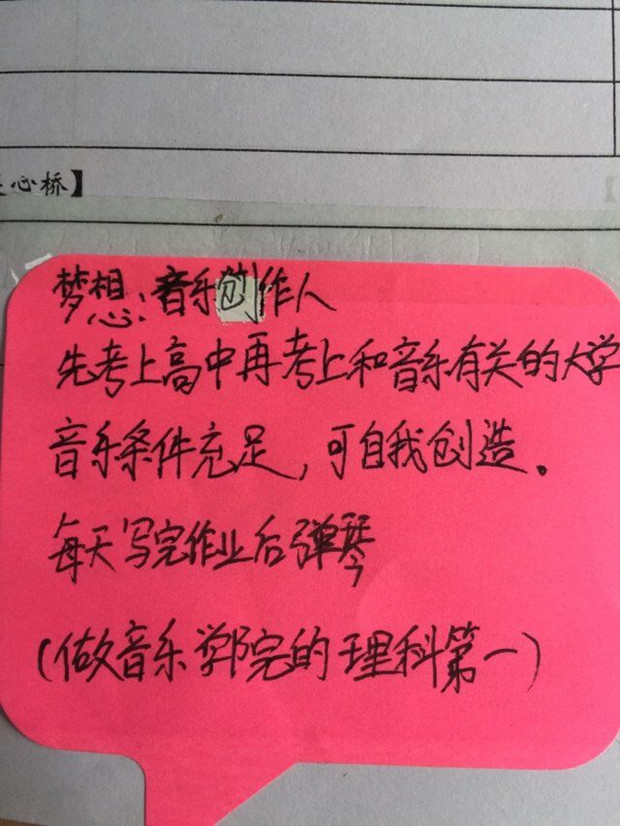 心桥】
梦想：音乐创作人
先考上高中再考上和音乐有关的大学
音乐条件充足，可自我创造。
每天写完作业后弹琴
（做音乐学院的理科第一）